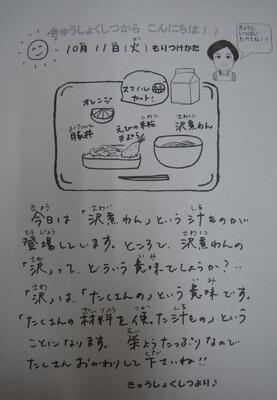 きゅうしょくしつから こんにちは！！
10月11日(火) もりつけかた
きょうも、
いっぱい
たべてね！！
スマイル
カット！
オレンジ
ぶたどん
豚丼
えびの米粉
天ぷら
さわに
沢煮わん
今日は「沢煮わん」という汁ものが
登場しています。ところで、沢煮わんの
「沢」って、どういう意味でしょうか？
「沢」は、「たくさんの」という意味です。
「たくさんの材料を使った汁もの」という
ことになります。栄ようたっぷりなので
たくさんおかわりして下さいね!!
きゅうしょくしつより♪